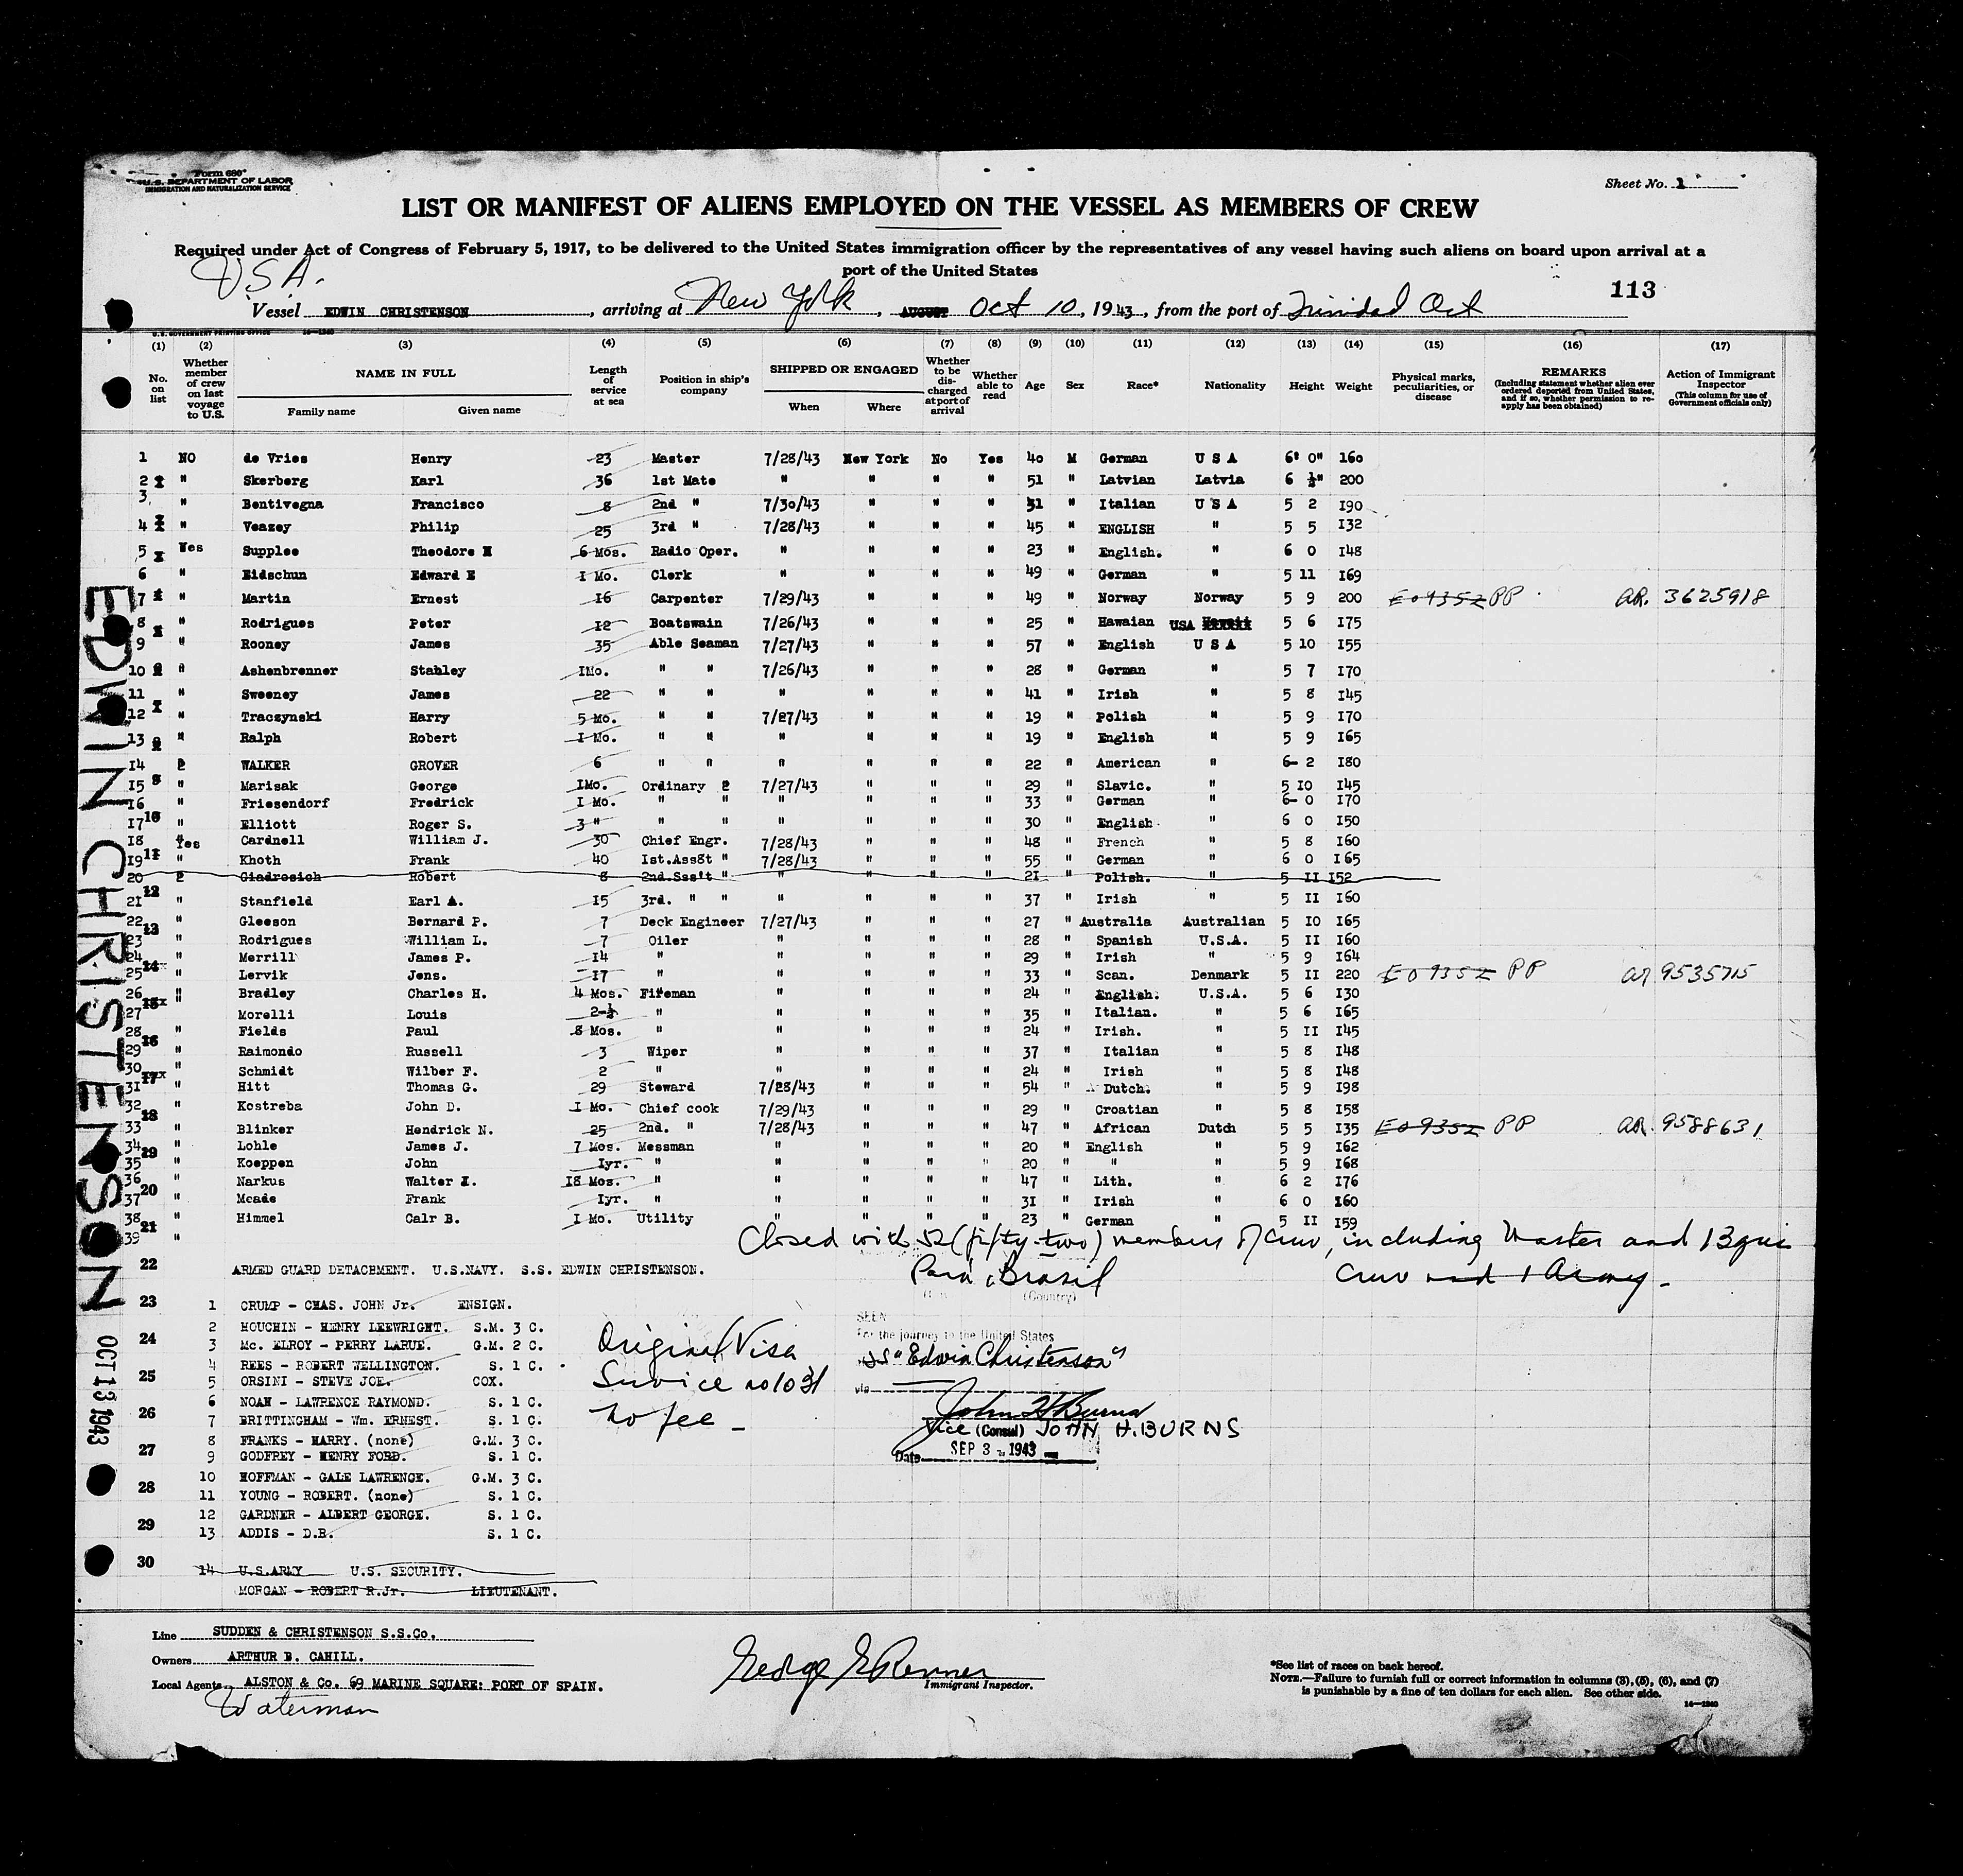 Form 680
U.S. DEPARTMENT OF LABOR
IMMIGRATION AND NATURALIZATION SERVICE
Sheet No. 1
LIST OR MANIFEST OF ALIENS EMPLOYED ON THE VESSEL AS MEMBERS OF CREW
Required under Act of Congress of February 5, 1917, to be delivered to the United States immigration officer by the representatives of any vessel having such aliens on board upon arrival at a
port of the United States
USA.
113
Vessel EDWIN CHRISTENSON, arriving at New York, AUGUST Oct 10, 1943, from the port of Trinidad Oct
U.S. GOVERNMENT PRINTING OFFICE
(1) (2) (3) (4) (5) (6) (7) (8) (9) (10) (11) (12) (13) (14) (15) (16) (17)
No. on list
Whether member of crew on last voyage to U.S.
NAME IN FULL
Family name Given name
Length of service at sea
Position in ship's company
SHIPPED OR ENGAGED
When Where
Whether to be discharged at port of arrival
Whether able to read
Age Sex Race* Nationality Height Weight
Physical marks, peculiarities, or disease
REMARKS
(Including statement whether alien ever ordered deported from United States, and if so, whether permission to reapply has been obtained)
Action of Immigrant Inspector
(This column for use of Government officials only)
1 NO de Vries Henry 23 Master 7/28/43 New York No Yes 40 M German U S A 6' 0" 160
2 " Skerberg Karl 36 1st Mate " " " " 51 " Latvian Latvia 6 ½" 200
3 " Bentivegna Francisco 8 2nd " 7/30/43 " " " 51 " Italian U S A 5 2 190
4 " Veazey Philip 25 3rd " 7/28/43 " " " 45 " ENGLISH " 5 5 132
5 Yes Supplee Theodore H 6 Mos. Radio Oper. " " " " 23 " English. " 6 0 148
6 " Eidschun Edward E 1 Mo. Clerk " " " " 49 " German " 5 11 169
7 " Martin Ernest 16 Carpenter 7/29/43 " " " 49 " Norway Norway 5 9 200 EO 9352 PP AR. 3625918
8 " Rodrigues Peter 12 Boatswain 7/26/43 " " " 25 " Hawaian USA Hawaii 5 6 175
9 " Rooney James 35 Able Seaman 7/27/43 " " " 57 " English U S A 5 10 155
10 " Ashenbrenner Stahley 1Mo. " " 7/26/43 " " " 28 " German " 5 7 170
11 " Sweeney James 22 " " " " " " 41 " Irish " 5 8 145
12 " Traczynski Harry 5 Mo. " " 7/27/43 " " " 19 " Polish " 5 9 170
13 " Ralph Robert 1 Mo. " " " " " " 19 " English " 5 9 165
14 " WALKER GROVER 6 " " " " " " 22 " American " 6- 2 180
15 " Marisak George 1Mo. Ordinary " 7/27/43 " " " 29 " Slavic. " 5 10 145
16 " Friesendorf Fredrick 1 Mo. " " " " " " 33 " German " 6- 0 170
17 " Elliott Roger S. 3 " " " " " " " 30 " English " 6 0 150
18 Yes Cardnell William J. 30 Chief Engr. 7/28/43 " " " 48 " French " 5 8 160
19 " Khoth Frank 40 1st.Ass8t " 7/28/43 " " " 55 " German " 6 0 165
20 " Giadrosich Robert 8 2nd.Sss't " " " " " 21 " Polish. " 5 11 152
21 " Stanfield Earl A. 15 3rd. " " " " " " 37 " Irish " 5 11 160
22 " Gleeson Bernard P. 7 Deck Engineer 7/27/43 " " " 27 " Australia Australian 5 10 165
23 " Rodrigues William L. 7 Oiler " " " " 28 " Spanish U.S.A. 5 11 160
24 " Merrill James P. 14 " " " " " 29 " Irish " 5 9 164
25 " Lervik Jens. 17 " " " " " 33 " Scan. Denmark 5 11 220 EO 9352 PP AR 9535715
26 " Bradley Charles H. 4 Mos. Fireman " " " " 24 " English. U.S.A. 5 6 130
27 Morelli Louis 2-½ " " " " " 35 " Italian. " 5 6 165
28 " Fields Paul 8 Mos. " " " " " 24 " Irish. " 5 11 145
29 " Raimondo Russell 3 Wiper " " " " 37 " Italian " 5 8 148
30 " Schmidt Wilber F. 2 " " " " " 24 " Irish " 5 8 148
31 " Hitt Thomas G. 29 Steward 7/28/43 " " " 54 " Dutch. " 5 9 198
32 " Kostreba John D. 1 Mo. Chief cook 7/29/43 " " " 29 " Croatian " 5 8 158
33 " Blinker Hendrick N. 25 2nd. " 7/28/43 " " " 47 " African Dutch 5 5 135 EO 9352 PP AR. 9588631
34 " Lohle James J. 7 Mos. Messman " " " " 20 " English " 5 9 162
35 " Koeppen John 1yr. " " " " " 20 " " " 5 9 168
36 " Narkus Walter I. 18 Mos. " " " " " 47 " Lith. " 6 2 176
37 " Mcade Frank 1yr. " " " " " 31 " Irish " 6 0 160
38 " Himmel Calr B. 1 Mo. Utility " " " " 23 " German " 5 11 159
39 "
Closed with 52 (fifty-two) members of crew, including Master and 13 gun
crew and 1 Army.
Para, Brasil
(Country)
22 ARMED GUARD DETACHMENT. U.S.NAVY. S.S. EDWIN CHRISTENSON.
23 1 CRUMP - CHAS. JOHN Jr. ENSIGN.
2 HOUCHIN - HENRY LEEWRIGHT. S.M. 3 C.
24 3 Mc. ELROY - PERRY LARUE. G.M. 2 C.
4 REES - ROBERT WELLINGTON. S. 1 C.
25 5 ORSINI - STEVE JOE. COX.
6 NOAH - LAWRENCE RAYMOND. S. 1 C.
26 7 BRITTINGHAM - Wm. ERNEST. S. 1 C.
8 FRANKS - HARRY. (none) G.M. 3 C.
27 9 GODFREY - HENRY FORD. S. 1 C.
10 HOFFMAN - GALE LAWRENCE. G.M. 3 C.
28 11 YOUNG - ROBERT. (none) S. 1 C.
12 GARDNER - ALBERT GEORGE. S. 1 C.
29 13 ADDIS - D.B. S. 1 C.
30 14 U.S.ARMY U.S. SECURITY.
MORGAN - ROBERT R.Jr. LIEUTENANT.
Original Visa
Service no 1031
no fee -
SEEN
For the journey to the United States
SS "Edwin Christenson"
via
John H Burns
Vice (Consul) JOHN H. BURNS
Date SEP 3 - 1943
EDWIN CHRISTENSON
OCT 13 1943
Line SUDDEN & CHRISTENSON S.S.Co.
Owners ARTHUR B. CAHILL.
Local Agents ALSTON & Co. 69 MARINE SQUARE: PORT OF SPAIN.
Waterman
George E Renner
Immigrant Inspector.
*See list of races on back hereof.
NOTE.—Failure to furnish full or correct information in columns (3), (5), (6), and (7)
is punishable by a fine of ten dollars for each alien. See other side.
14—1240